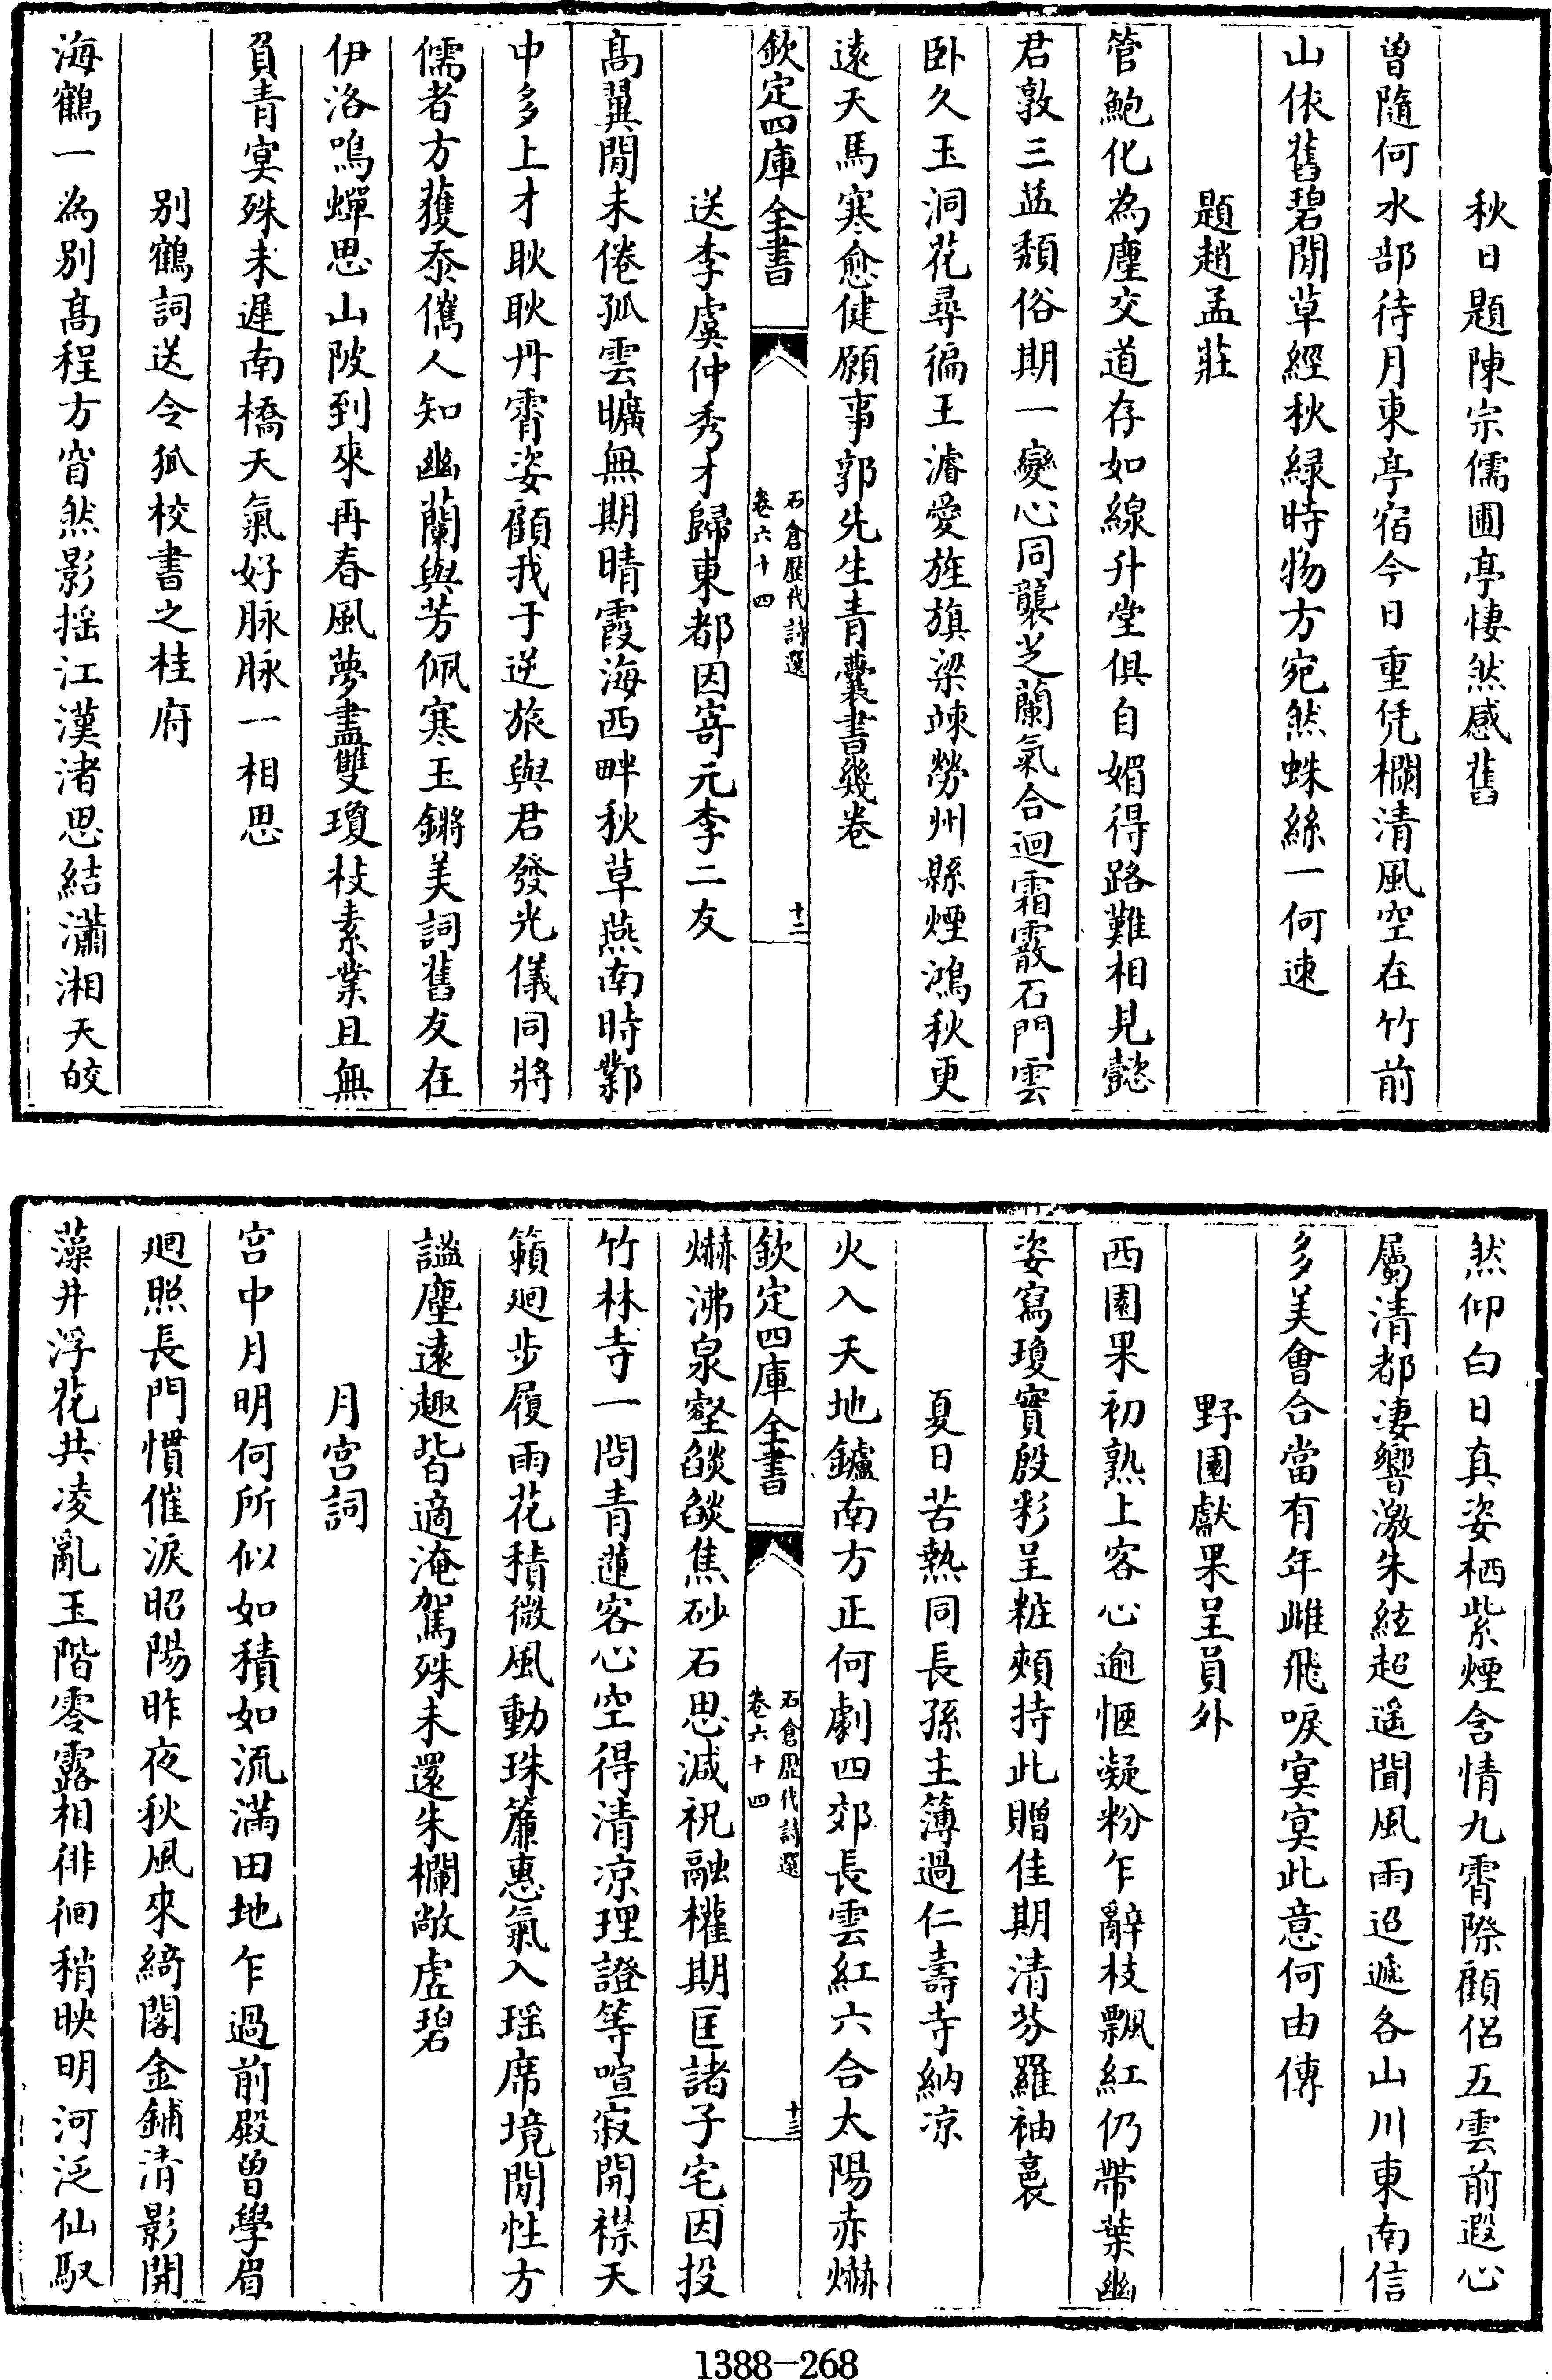 秋日題陳宗儒圃亭悽然感舊
曾隨何水部待月東亭宿今日重凭欄清風空在竹前
山依舊碧閒草經秋緑時物方宛然蛛絲一何速
題趙孟莊
管鮑化為塵交道存如線升堂俱自媚得路難相見懿
君敦三益頽俗期一變心同襲芝蘭氣合迴霜霰石門雲
卧久玉洞花尋徧王濬愛旌旗梁竦勞州縣煙鴻秋更
遠天馬寒愈健願事郭先生青囊書幾卷
欽定四庫全書
石倉歴代詩選
卷六十四
十二
送李虞仲秀才歸東都因寄元李二友
髙翼閒未倦孤雲曠無期晴霞海西畔秋草燕南時鄴
中多上才耿耿丹霄姿顧我于逆旅與君發光儀同將
儒者方獲忝儁人知幽蘭與芳佩寒玉鏘美詞舊友在
伊洛鳴蟬思山陂到來再春風夢盡雙瓊枝素業且無
負青㝠殊未遲南橋天氣好脉脉一相思
别鶴詞送令狐校書之桂府
海鶴一為别髙程方窅然影揺江漢渚思結瀟湘天皎
然仰白日真姿栖紫煙含情九霄際顧侣五雲前遐心
屬清都凄響激朱絃超遥聞風雨迢遞各山川東南信
多美會合當有年雌飛唳㝠㝠此意何由傳
野園獻果呈員外
西園果初熟上客心逾愜凝粉乍辭枝飄紅仍帶葉幽
姿寫瓊實殷彩呈粧頰持此贈佳期清芬羅袖裛
夏日苦熱同長孫主簿過仁壽寺納凉
火入天地鑪南方正何劇四郊長雲紅六合太陽赤爀
欽定四庫全書
石倉歴代詩選
卷六十四
十三
爀沸泉壑燄燄焦砂石思減祝融權期匡諸子宅因投
竹林寺一問青蓮客心空得清凉理證等喧寂開襟天
籟廽步履雨花積微風動珠簾惠氣入瑶席境閒性方
謐塵遠趣皆適淹駕殊未還朱欄敞虚碧
月宫詞
宫中月明何所似如積如流滿田地乍過前殿曾學眉
廽照長門慣催淚昭陽昨夜秋風來綺閣金鋪清影開
藻井浮花共凌亂玉階零露相徘徊稍映明河泛仙馭
1388—268